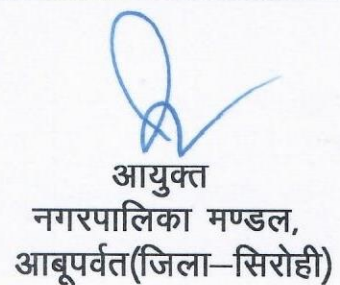 आयुक्त
नगरपालिका मण्डल,
आबूपर्वत(जिला–सिरोही)